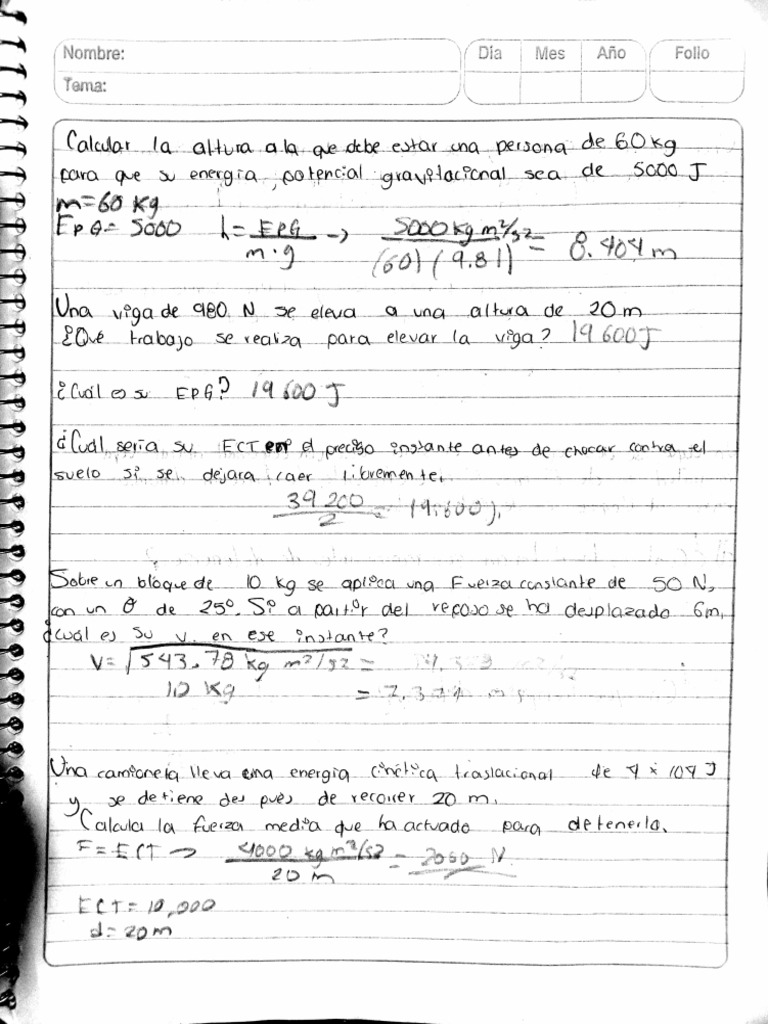 Nombre:
Dia Mes Año Folio
Tema:
Calcular la altura a la que debe estar una persona de 60 kg
para que su energía potencial gravitacional sea de 5000 J
m=60 kg
EPG= 5000 h= EPG / m·g → 5000 kg m²/s2 / (60)(9.81) = 8.404 m
Una viga de 980 N se eleva a una altura de 20 m
¿Qué trabajo se realiza para elevar la viga? 19 600 J
¿Cuál es su EPG? 19 600 J
¿Cuál sería su ECT en el preciso instante antes de chocar contra el
suelo si se dejara caer libremente.
39 200 / 2 = 19.600 J.
Sobre un bloque de 10 kg se aplica una Fuerza constante de 50 N,
con un θ de 25°. Si a partir del reposo se ha desplazado 6m,
¿cuál es su v. en ese instante?
V= √543.78 kg m²/s2 =
10 kg =
Una camioneta lleva una energía cinética traslacional de 4 x 104 J
y se detiene después de recorrer 20 m.
Calcula la fuerza media que ha actuado para detenerla.
F= ECT → 4000 kg m²/s2 / 20 m = 2000 N
ECT= 10,000
d= 20m